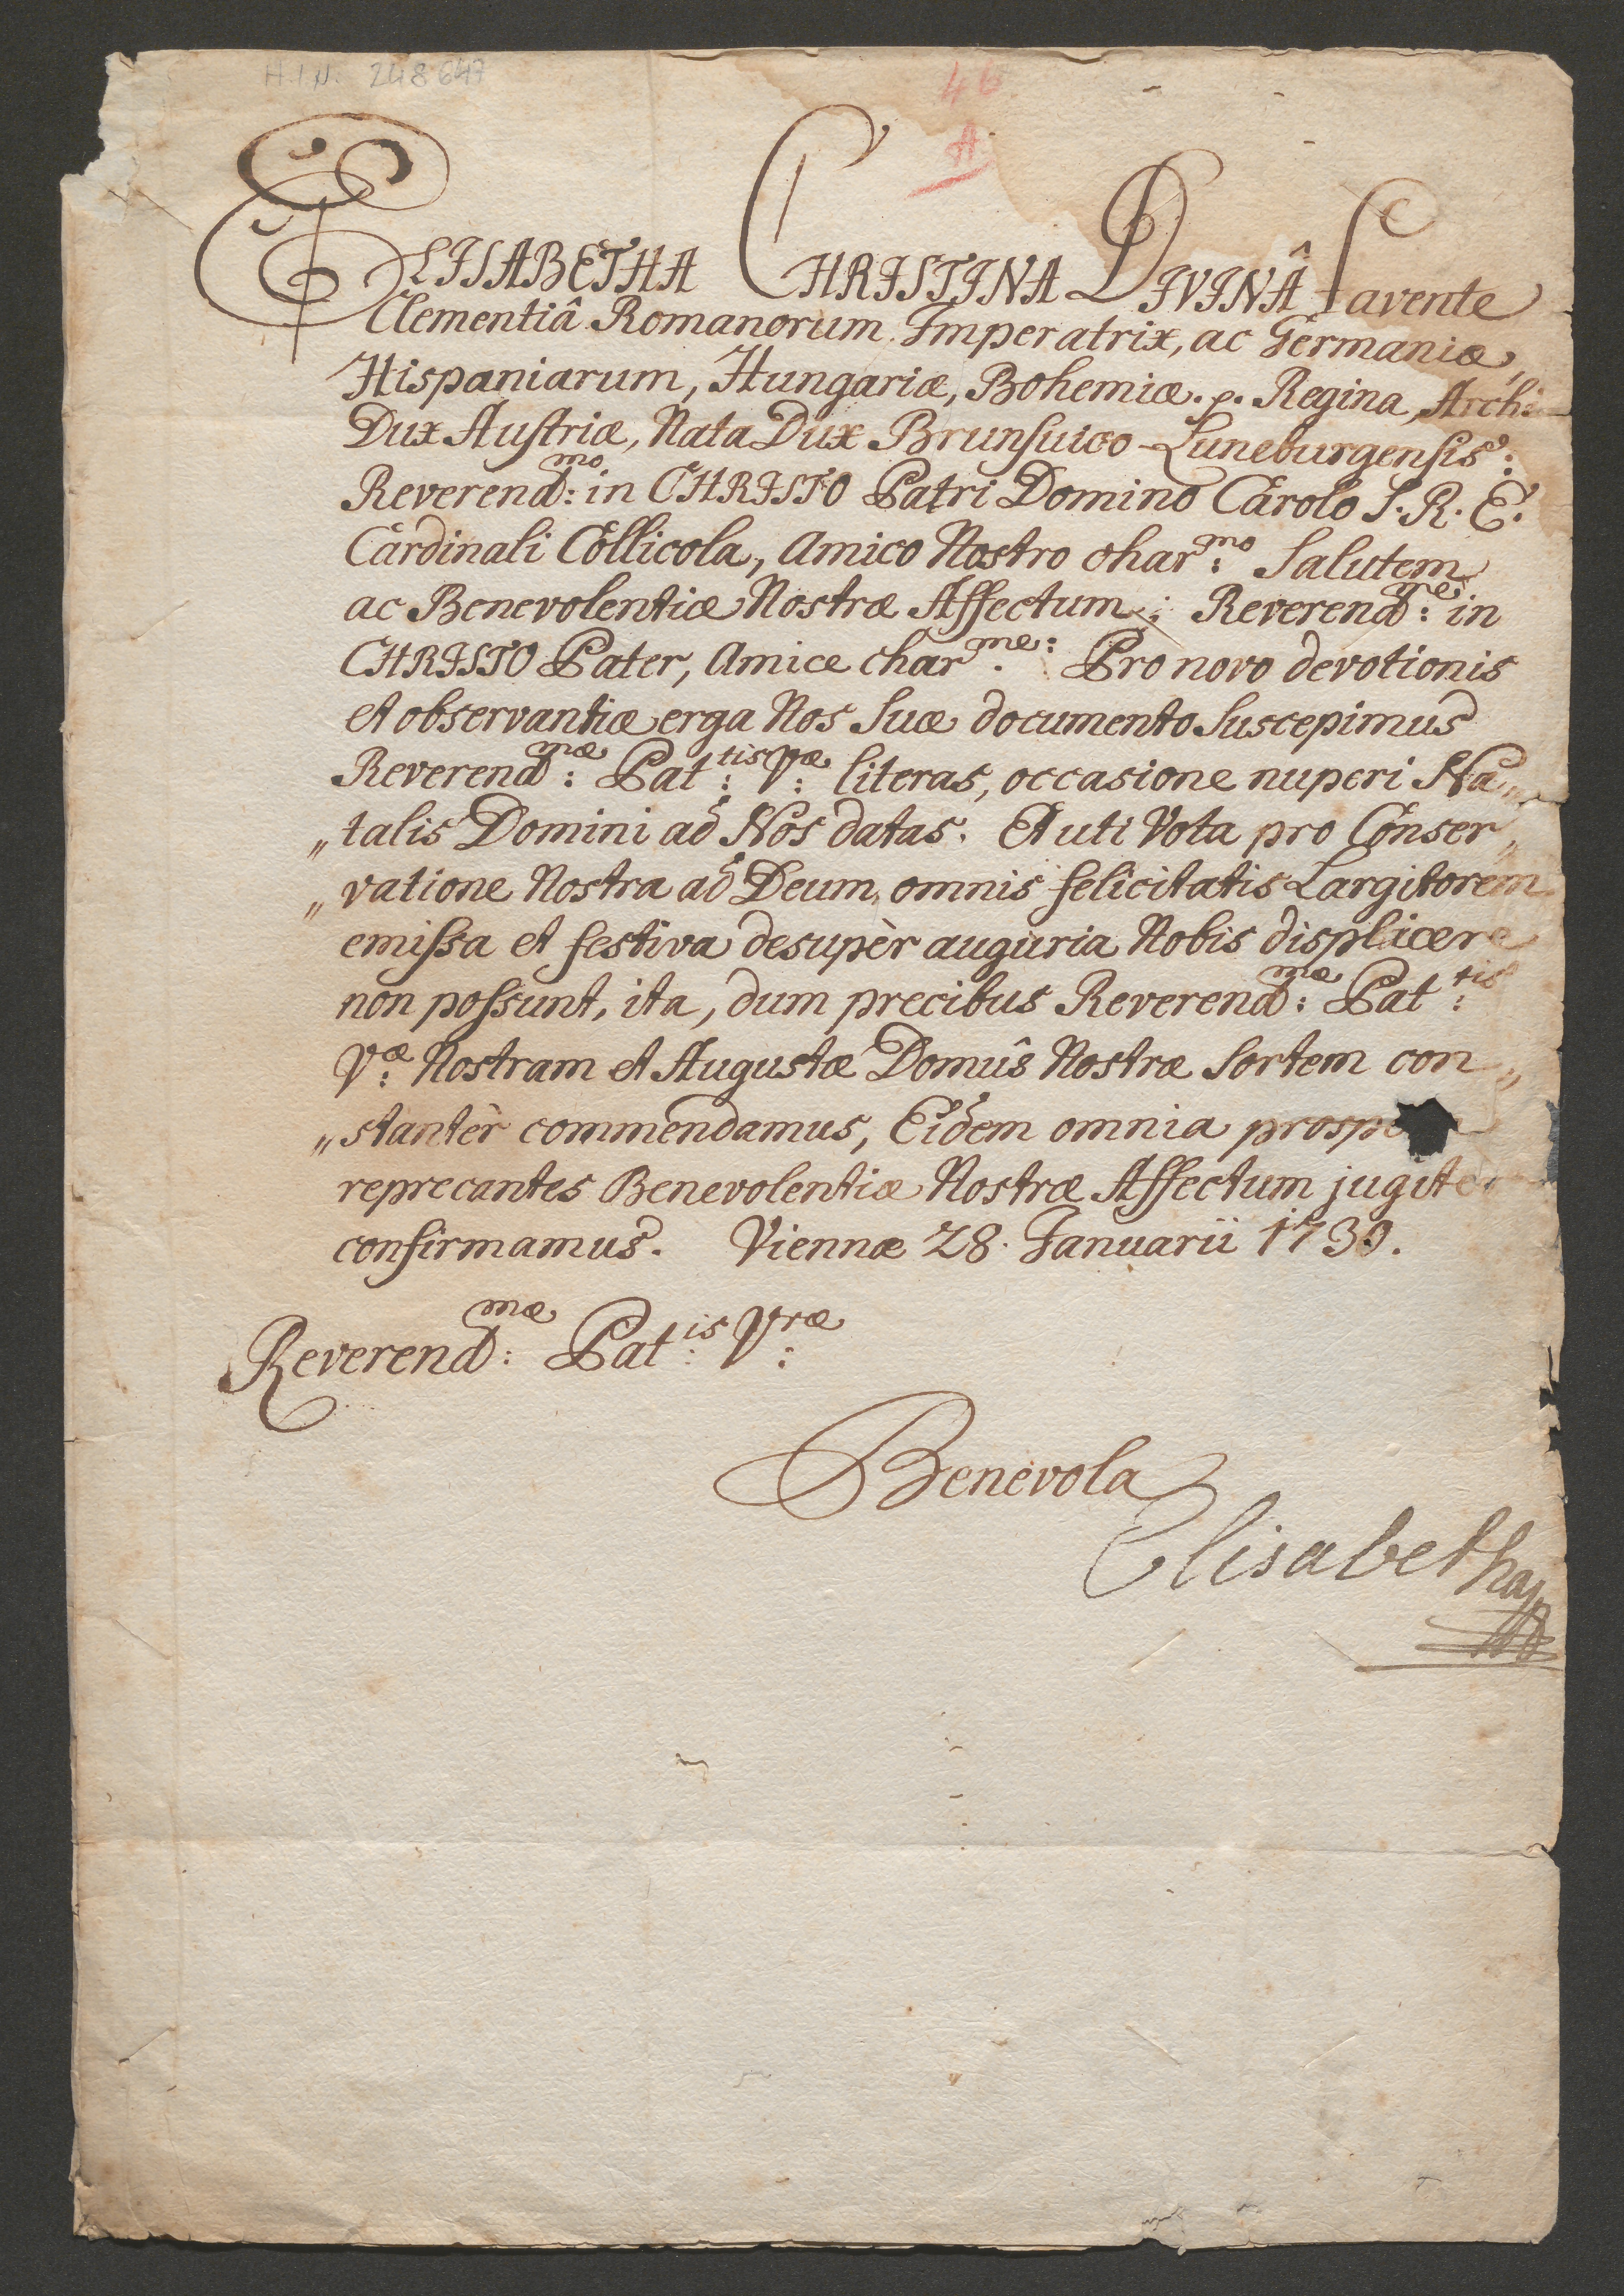 H.I.N. 248647
46
A
ELISABETHA CHRISTINA DIVINÂ favente
Clementiâ Romanorum Imperatrix, ac Germaniæ,
Hispaniarum, Hungariæ, Bohemiæ. p. Regina, Archi
Dux Austriæ, Nata Dux Brunsuico-Luneburgensis:
Reverend:mo in CHRISTO Patri Domino Carolo S. R. E.
Cardinali Collicola, Amico Nostro char:mo Salutem
ac Benevolentiæ Nostræ Affectum; Reverend:me in
CHRISTO Pater, Amice char.me: Pro novo devotionis
et observantiæ erga Nos Suæ documento Suscepimus
Reverend:mæ Pat:tis V:æ literas, occasione nuperi Na„
„talis Domini ad Nos datas. Et uti Vota pro Conser„
„vatione Nostra ad Deum, omnis felicitatis Largitorem
emissa et festiva desupèr auguria Nobis displicere
non possunt, ita, dum precibus Reverend:mæ Pat:tis
V:æ Nostram et Augustæ Domûs Nostræ Sortem con„
„stantèr commendamus, Eidem omnia
reprecantes Benevolentiæ Nostræ Affectum jugiter
confirmamus. Viennæ 28. Januarii 1730.
Reverend:mæ Pat:is V:ræ
Benevola
Elisabetha